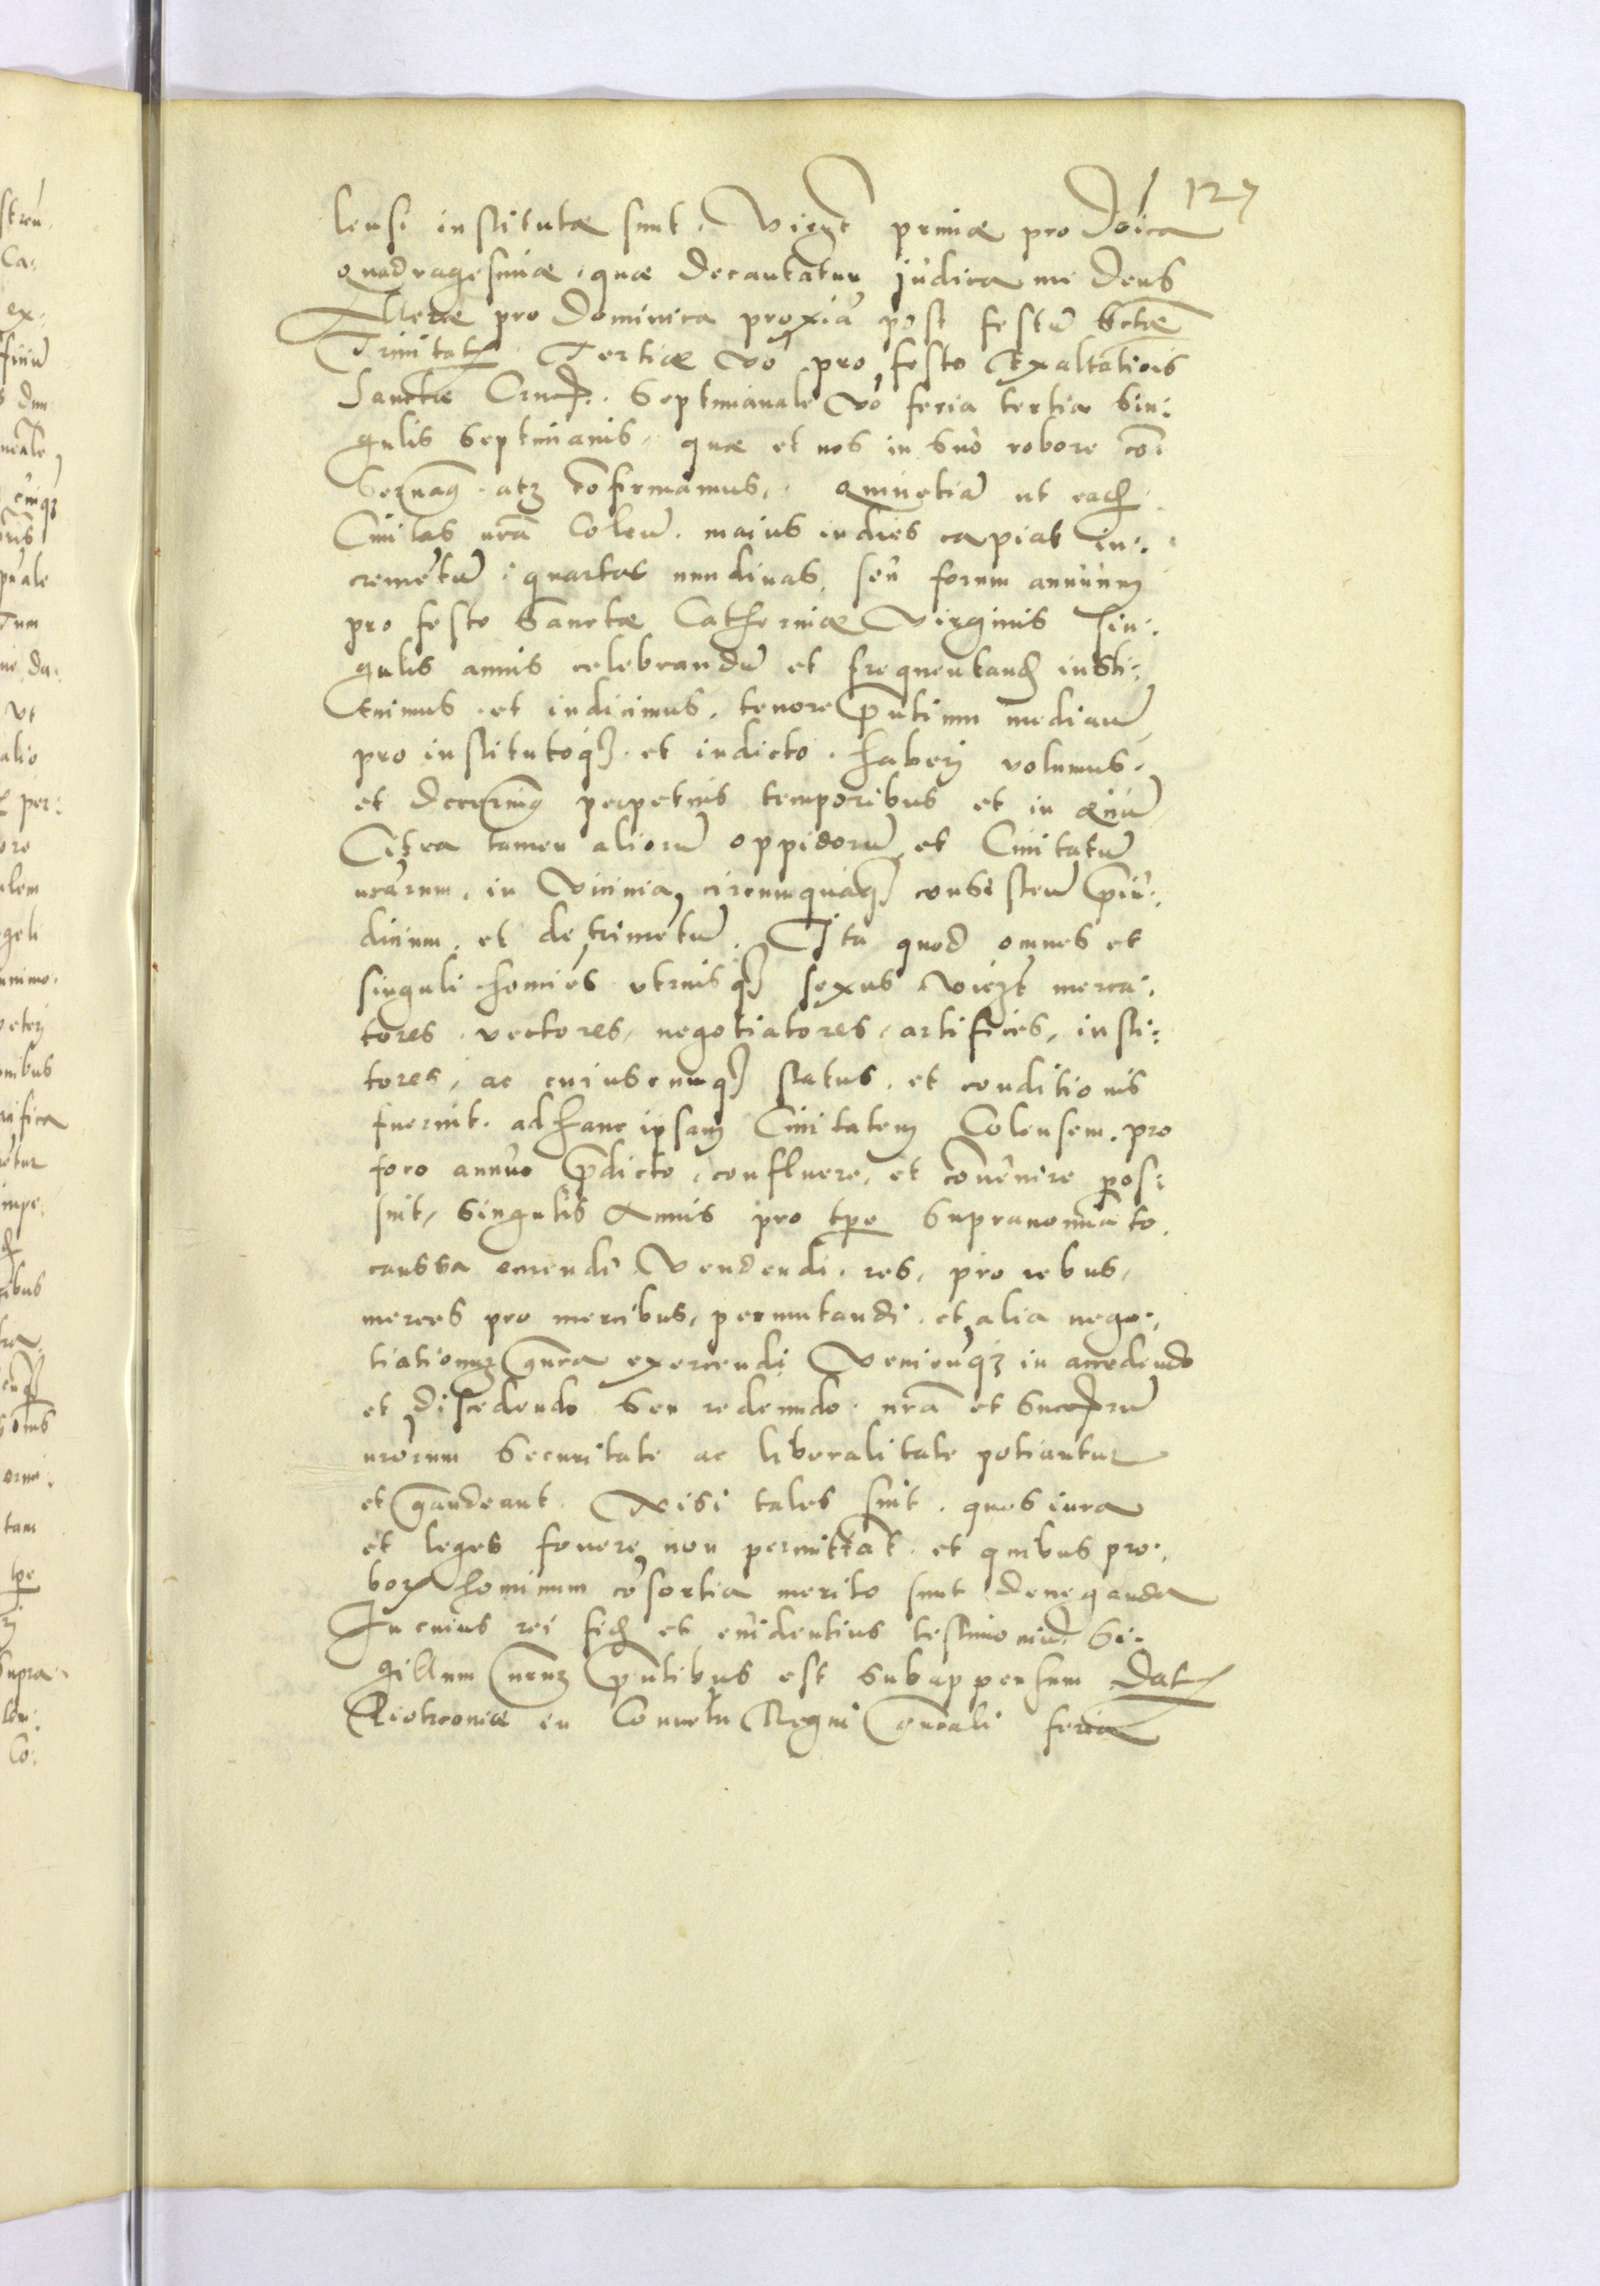 127
lensi institutæ sunt. Vičzt primæ pro doīca
quadragesimæ, quæ decantatur judica me Deus
Alteræ pro Dominica proxīa post festū Sctæ
Trinitat. Tertiæ vo pro festo Exaltatiōis
Sanctæ Cruc. Septimanale vo feria tertia sin:
gulis septimanis, quæ et nos in suo robore cō:
servam atq confirmamus. Quinetiā ut eadē
Civitas nrā Colen. maius indies capiat in:
cremētū, quartas nundinas, seu forum annuum
pro festo Sanctæ Catherinæ Virginis Sin:
gulis annis celebrandū et frequentand insti:
tuimus et indicimus, tenore pntium mediañ,
pro institutoq et indicto haberj volumus.
et decernim perpetuis temporibus et in ævū
Citra tamen aliorū oppidorū et Civitatū
nrārum, in vicinia circumquaq consisteñ præiu:
dicium, et detrimētū. Ita quod omnes et
singuli homīes utriusq sexus vičzt merca:
tores, vectores, negotiatores, artifices, insti:
tores, ac cuiuscumq status, et conditionis
fuerint. ad hanc ipsam Civitatem Colensem. pro
foro annuo prædicto, confluere, et cōuenire pos:
sint, singulis Annis pro tpe supranomīato.
caussa emendi Vendendi. res, pro rebus,
merces pro mercibus, permutandi. et alia nego:
tiationum gnera exercendi Veniendiq in accedendo
et discedendo seu redeundo. nrā et Succrū
nrorum securitate ac liberalitate potiantur
et gaudeant. Nisi tales sint. quos iura
et leges fovere non permittāt. et quibus pro:
borum hominum cōsortia merito sunt deneganda
In cuius rei fid et evidentius testimoniū. Si:
gillum nrum pntibus est subappensum Dat
Piotrcouiæ in Conuetu Regni gnrali feria